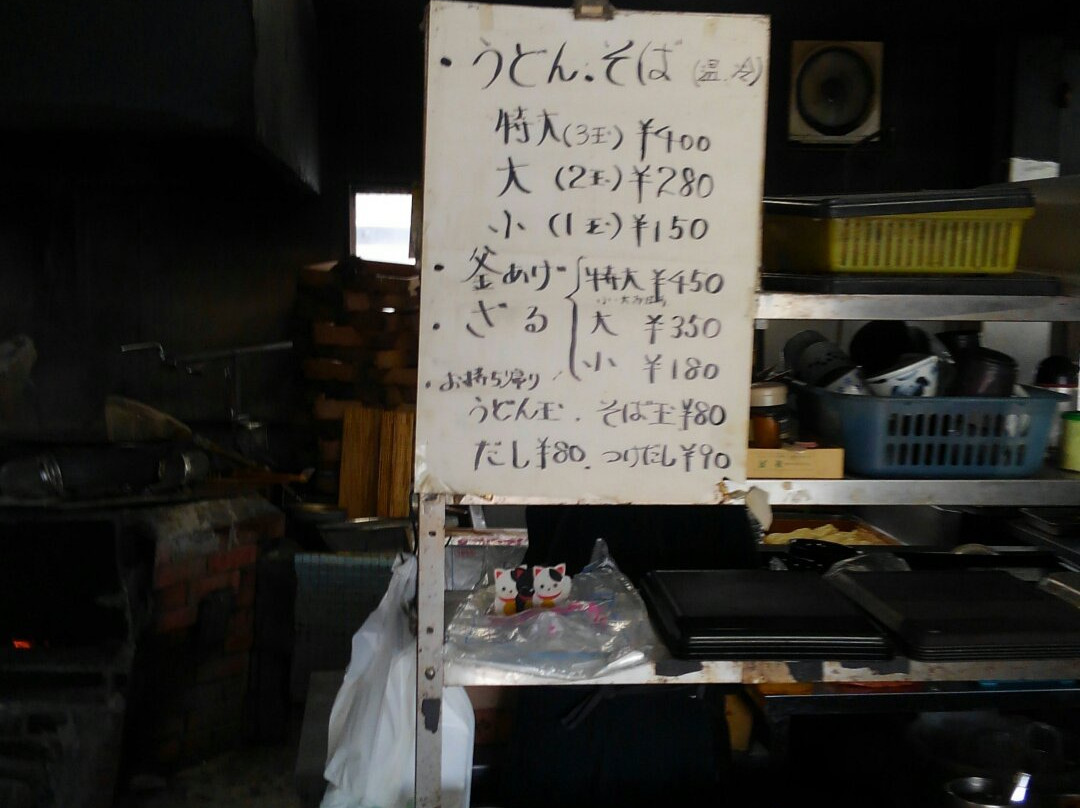 ・うどん.そば (温.冷)
特大(3玉) ¥400
大 (2玉) ¥280
小 (1玉) ¥150
・釜あげ 特大 ¥450
・ざる 大 ¥350
小 ¥180
・お持ち帰り
うどん玉.そば玉 ¥80
だし ¥80.つけだし ¥90